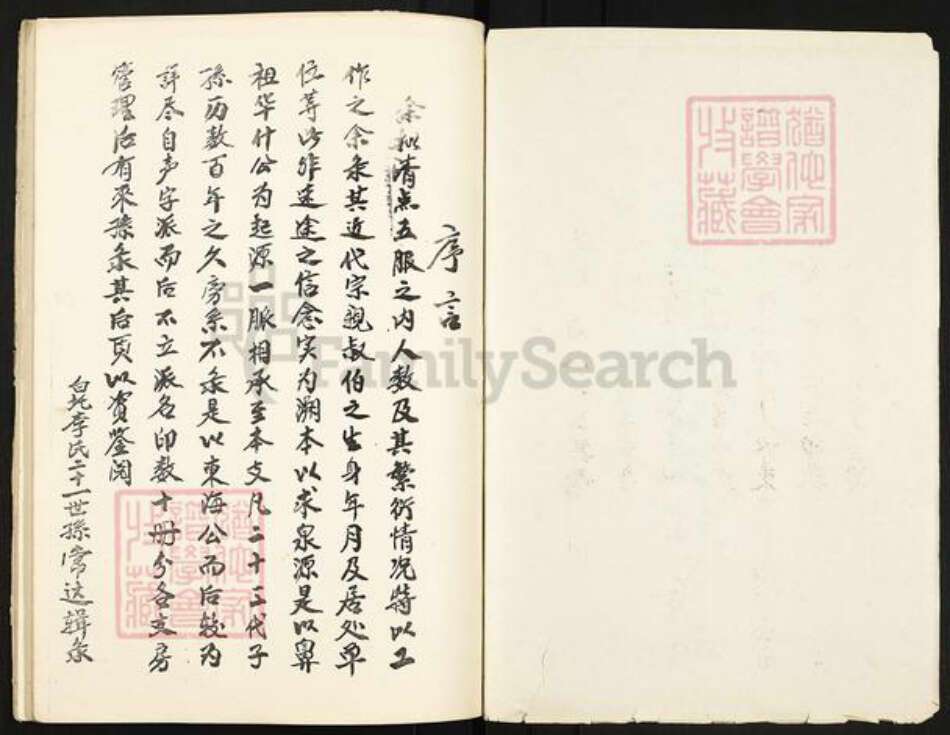 序言
余拟清点五服之内人数及其繁衍情况特以工
作之余条其近代宗親叔伯之生身年月及居处单
位等此非迷途之信念实为溯本以求泉源是以鼻
祖华什公为起源一脈相承至本支凡二十三代子
孫历数百年之久旁系不条是以東海公而后较为
詳尽自声字派而后不立派名印数十册分各支房
管理后有來孫条其后頁以資鉴阅
白圫李氏二十一世孫常达辑条
猶他家
譜學會
收藏
猶他家
譜學會
收藏
FamilySearch